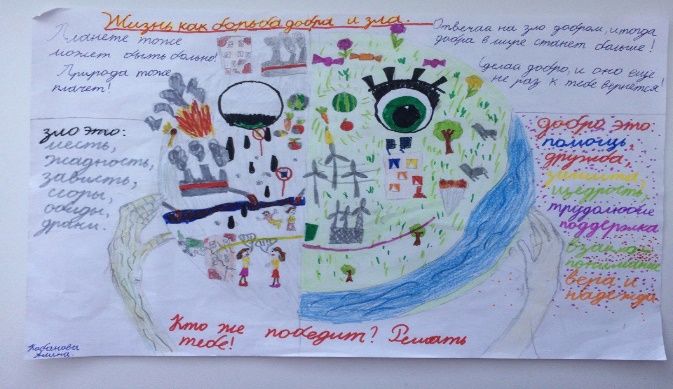 Жизнь как борьба добра и зла.
Планете тоже
может быть больно!
Природа тоже
плачет!
Отвечая на зло добром, и тогда
добра в мире станет больше!
Сделай добро, и оно еще
не раз к тебе вернется!
зло это:
месть,
жадность,
зависть,
ссоры,
обиды,
драки.
добро это
помощь,
дружба,
защита
щедрость,
трудолюбие
поддержка
взаимо-
понимание
вера и
надежда
Кто же победит? Решать
тебе!